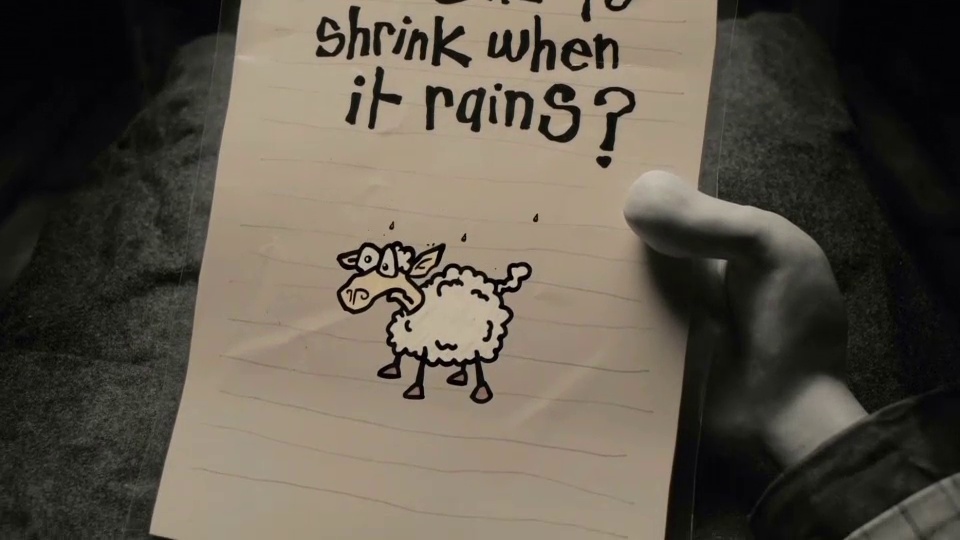 shrink when
it rains?